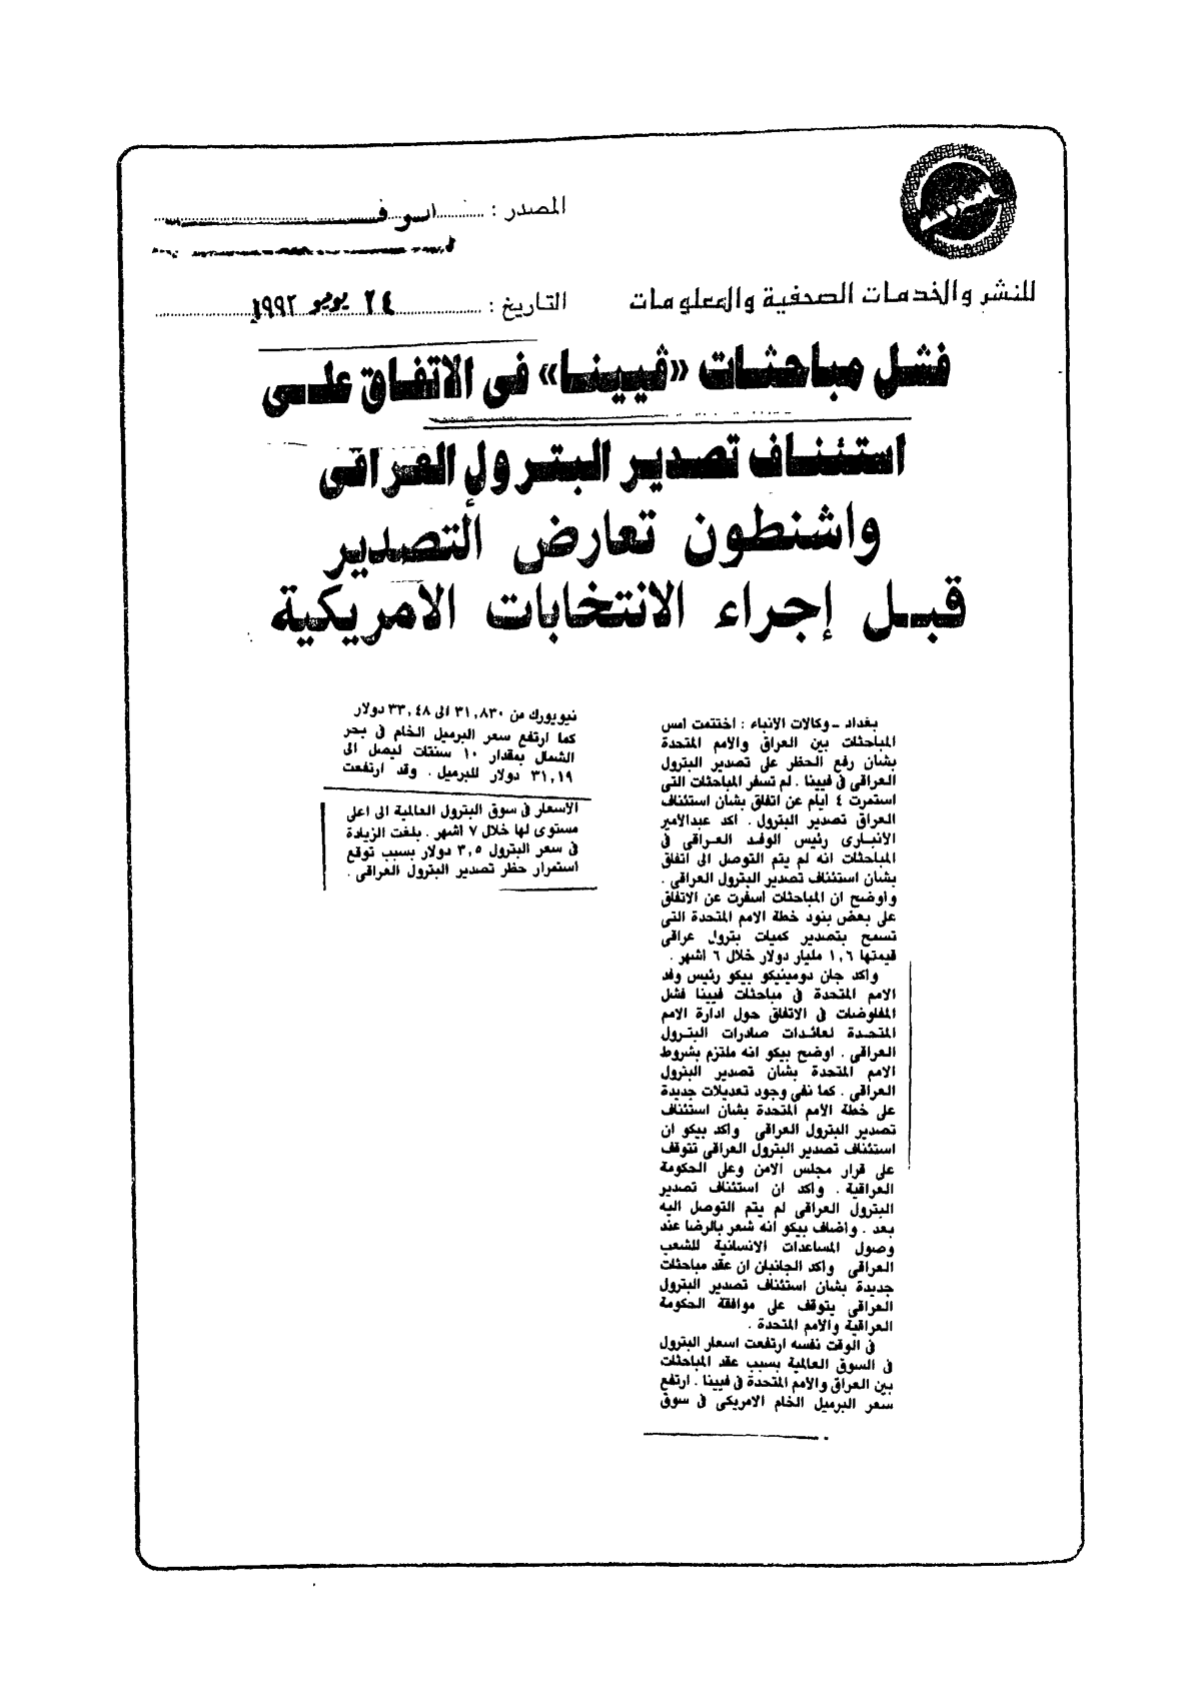 المصدر : الوفد
للنشر والخدمات الصحفية والمعلومات
التاريخ : ٢٤ يونيو ١٩٩٢
فشل مباحثات «ڤيينا» فى الاتفاق على
استئناف تصدير البترول العراقى
واشنطون تعارض التصدير
قبل إجراء الانتخابات الامريكية
بغداد ـ وكالات الانباء : اختتمت امس
المباحثات بين العراق والامم المتحدة
بشان رفع الحظر على تصدير البترول
العراقى فى فيينا . لم تسفر المباحثات التى
استمرت ٤ ايام عن اتفاق بشان استئناف
العراق تصدير البترول . اكد عبدالامير
الانبارى رئيس الوفد العراقى فى
المباحثات انه لم يتم التوصل الى اتفاق
بشان استئناف تصدير البترول العراقى .
واوضح ان المباحثات اسفرت عن الاتفاق
على بعض بنود خطة الامم المتحدة التى
تسمح بتصدير كميات بترول عراقى
قيمتها ١,٦ مليار دولار خلال ٦ اشهر .
واكد جان دومينيكو بيكو رئيس وفد
الامم المتحدة فى مباحثات فيينا فشل
المفاوضات فى الاتفاق حول ادارة الامم
المتحدة لعائدات صادرات البترول
العراقى . اوضح بيكو انه ملتزم بشروط
الامم المتحدة بشان تصدير البترول
العراقى . كما نفى وجود تعديلات جديدة
على خطة الامم المتحدة بشان استئناف
تصدير البترول العراقى واكد بيكو ان
استئناف تصدير البترول العراقى تتوقف
على قرار مجلس الامن وعلى الحكومة
العراقية . واكد ان استئناف تصدير
البترول العراقى لم يتم التوصل اليه
بعد . واضاف بيكو انه شعر بالرضا عند
وصول المساعدات الانسانية للشعب
العراقى واكد الجانبان ان عقد مباحثات
جديدة بشان استئناف تصدير البترول
العراقى يتوقف على موافقة الحكومة
العراقية والامم المتحدة .
فى الوقت نفسه ارتفعت اسعار البترول
فى السوق العالمية بسبب عقد المباحثات
بين العراق والامم المتحدة فى فيينا . ارتفع
سعر البرميل الخام الامريكى فى سوق
نيويورك من ٣١,٨٣٠ الى ٣٣,٤٨ دولار
كما ارتفع سعر البرميل الخام فى بحر
الشمال بمقدار ١٠ سنتات ليصل الى
٣١,١٩ دولار للبرميل . وقد ارتفعت
الاسعار فى سوق البترول العالمية الى اعلى
مستوى لها خلال ٧ اشهر . بلغت الزيادة
فى سعر البترول ٣,٥ دولار بسبب توقع
استمرار حظر تصدير البترول العراقى .